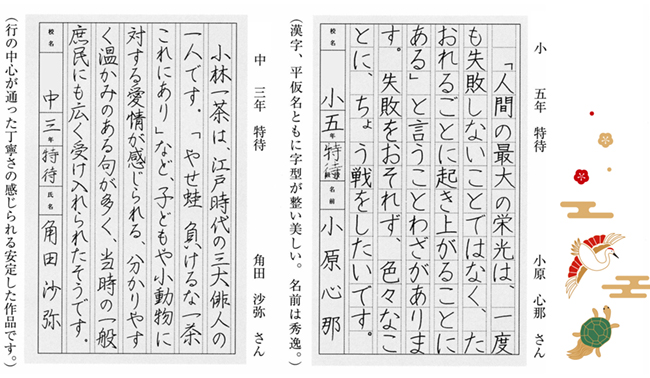 小 五年 特待
小原 心那 さん
「人間の最大の栄光は、一度
も失敗しないことではなく、た
おれるごとに起き上がることに
ある」と言うことわざがありま
す。失敗をおそれず、色々なこ
とに、ちょう戦をしたいです。
校名
小五年
特待
名前
小原心那
(漢字、平仮名ともに字型が整い美しい。名前は秀逸。)
中 三年 特待
角田 沙弥 さん
小林一茶は、江戸時代の三大俳人の
一人です。「やせ蛙 負けるな一茶
これにあり」など、子どもや小動物に
対する愛情が感じられる、分かりやす
く温かみのある句が多く、当時の一般
庶民にも広く受け入れられたそうです。
校名
中三年
特待
氏名
角田沙弥
(行の中心が通った丁寧さの感じられる安定した作品です。)